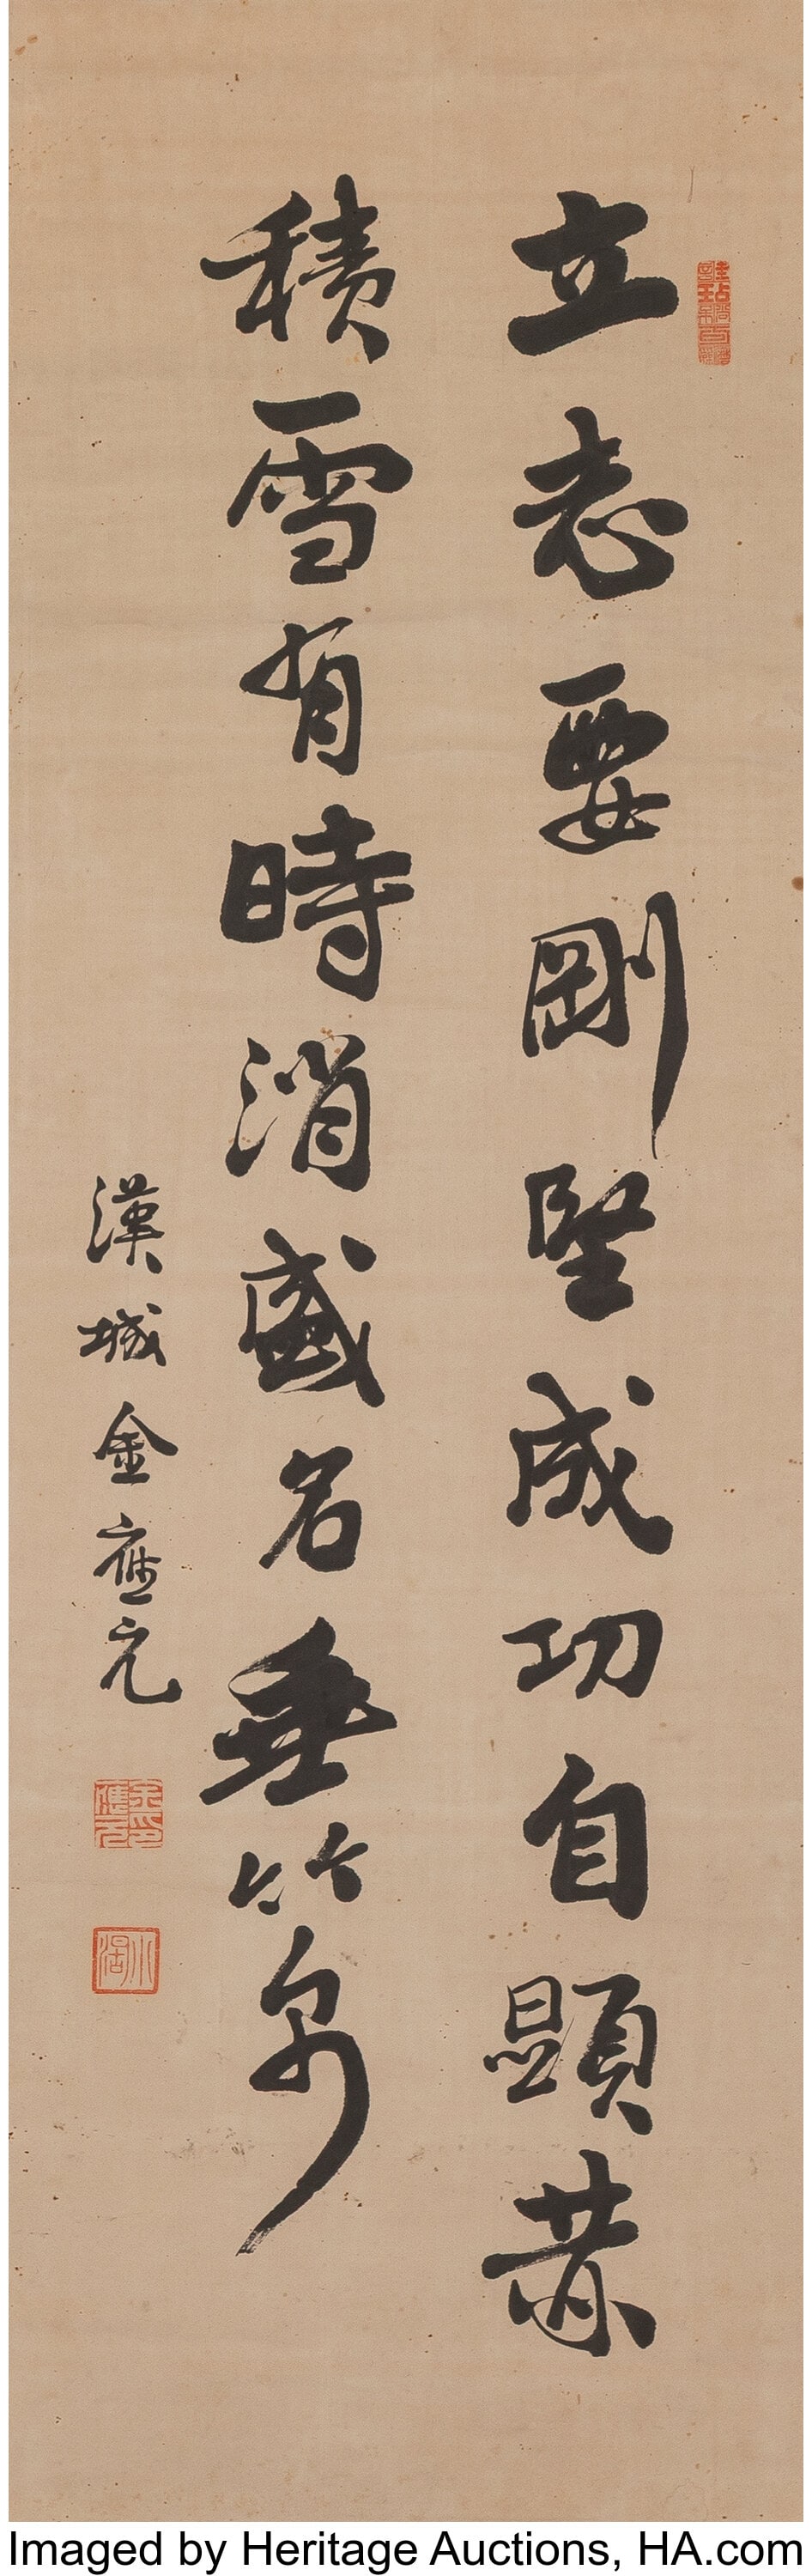 立志要剛堅成功自顕
積雪有時消盛名垂竹帛
漢城金應元
金印
應元
小湖
Imaged by Heritage Auctions, HA.com